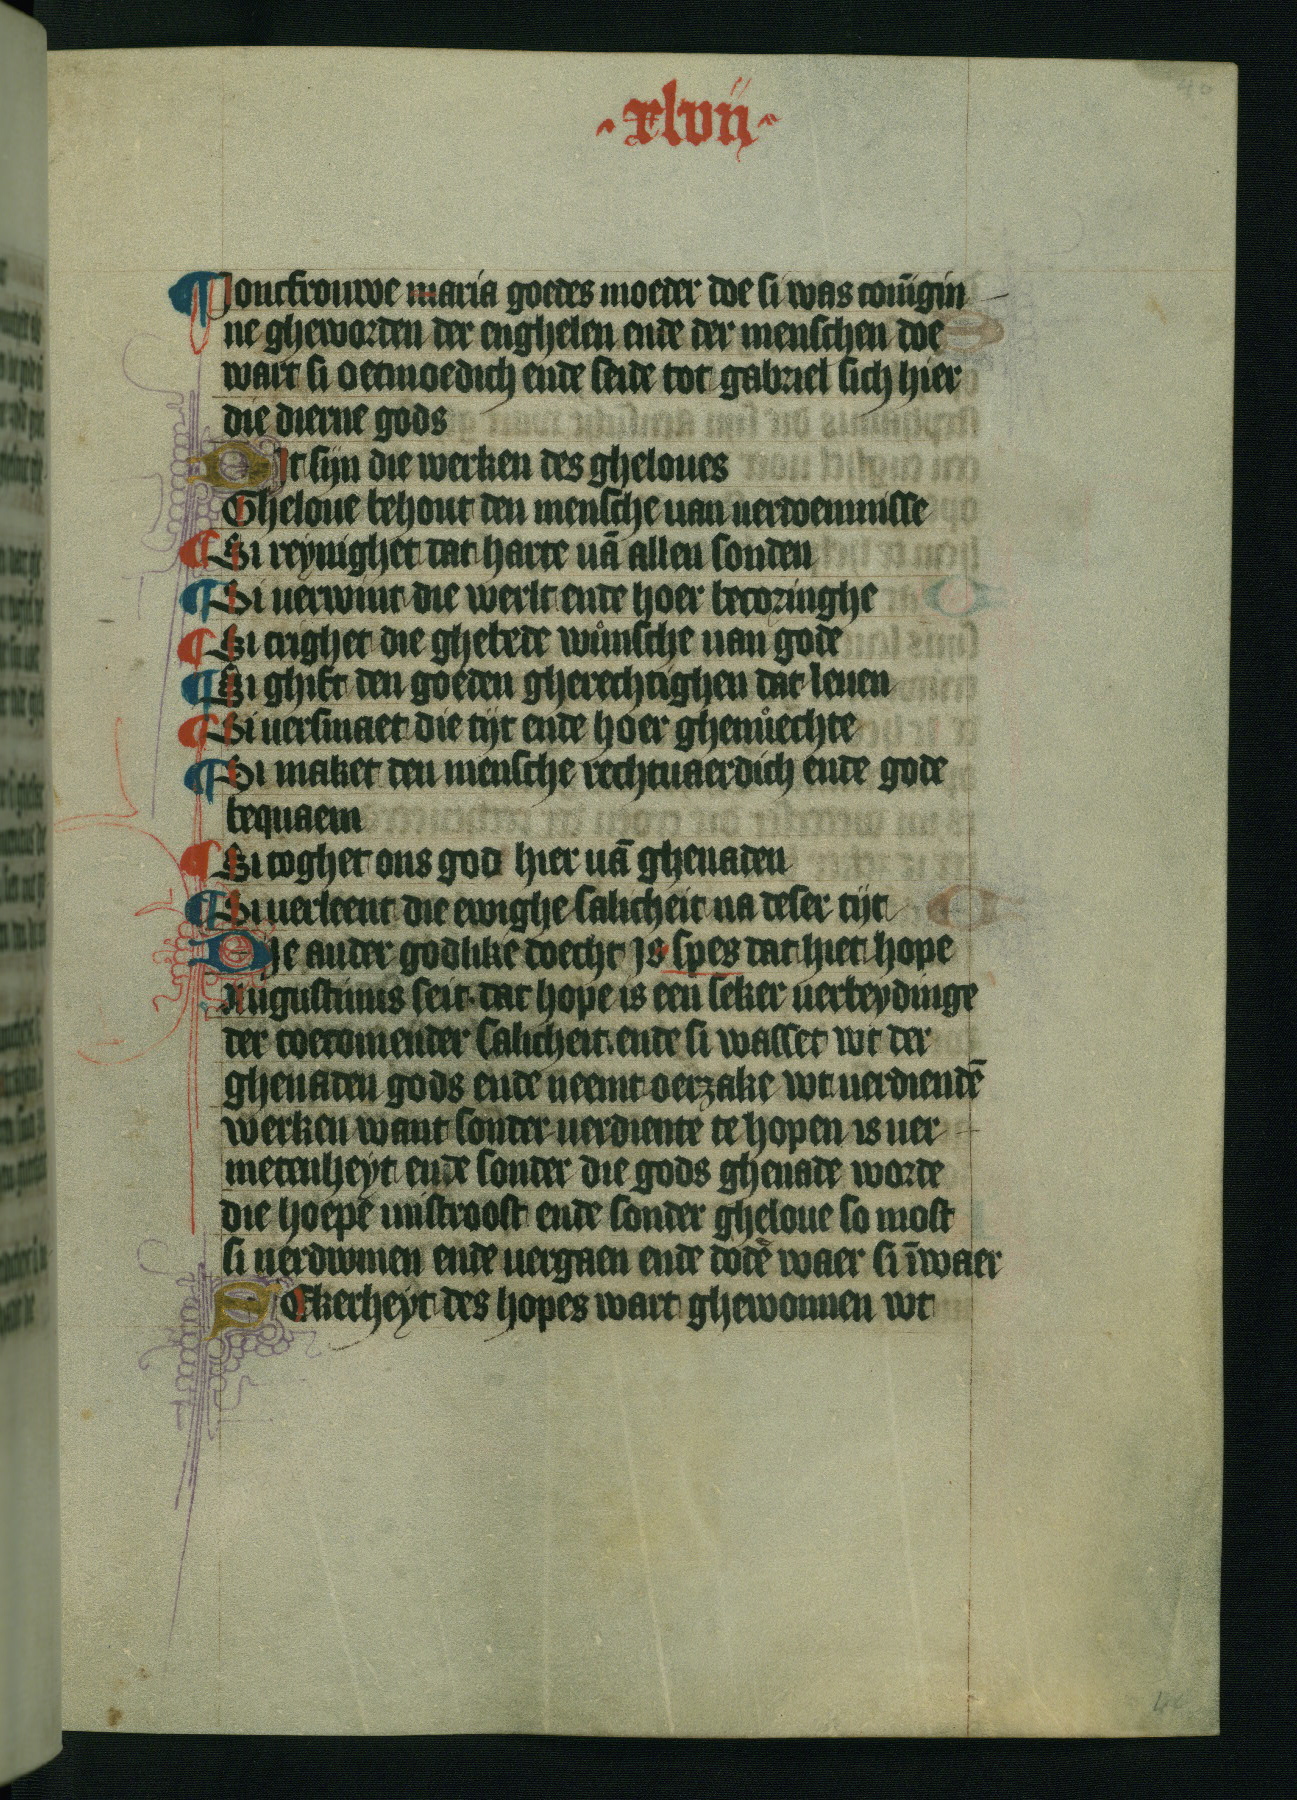 ·xlvij·
¶ Joncfrouwe maria goedes moeder doe si was coni̅gin
ne gheworden der enghelen ende der menschen doe
wart si oetmoedich ende seide tot gabriel sich hier
die dierne gods
Dit sijn die werken des gheloues
Gheloue behout den mensche uan uerdoemnisse
¶ Si reynighet dat harte uā allen sonden
¶ Si uerwint die werlt ende hoer becoringhe
¶ Si crighet die ghebede wůnsche uan gode
¶ Si ghift den goeden gherechtighen dat leuen
¶ Si uersmaet die tijt ende hoer ghenůechte
¶ Si maket den mensche rechtuaerdich ende gode
bequaem
¶ Si toghet ons god hier uā ghenaden
¶ Si uerleent die ewighe salicheit na deser tijt
Die ander godlike doecht Is spes dat hiet hope
Augustinus seit dat hope is een seker uerbeydinge
der toecomender salicheit ende si wasset wt der
ghenaden gods ende neemt oerzake wt uerdiendē
werken want sonder uerdiente te hopen is uer
metenheyt ende sonder die gods ghenade worde
die hoepe mistroost ende sonder gheloue so most
si uerdwinen ende uergaen ende dodē waer si īwaer
Sekerheyt des hopes wart ghewonnen wt